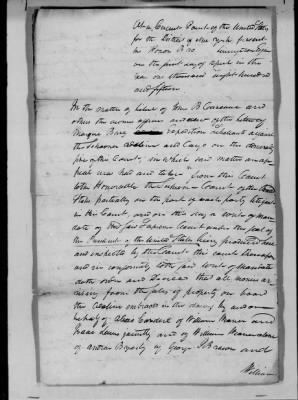 At a Circuit Court of the United States
for the District of New York present
his Honor B
on the first day of April in the
year one thousand eight hundred
and fifteen
In the matter of libel of Wm B and
others the owners officers and crew of the Letter of
Marque Expedition Libellants against
the Schooner Adeline and Cargo on the
of the Court, in which said matter an ap-
peal was had and taken from this Court
to the Honorable the Supreme Court of the United
States partially on the part of each party litigant
in this Court, and on this day a writ of Man-
date of the said Supreme Court under the seal of
the President of the United States being produced here
and inspected by the Court the court thereupon
and in conformity to the said writ of Mandate
doth order and decree that all monies
arising from the sales of property on board
the Adeline embraced in the claims by and on
behalf of Alexis Gardere of William Weaver and
Isaac Levis jointly and of William Weaver alone
of Andrew Byerly of George P Brown and
William